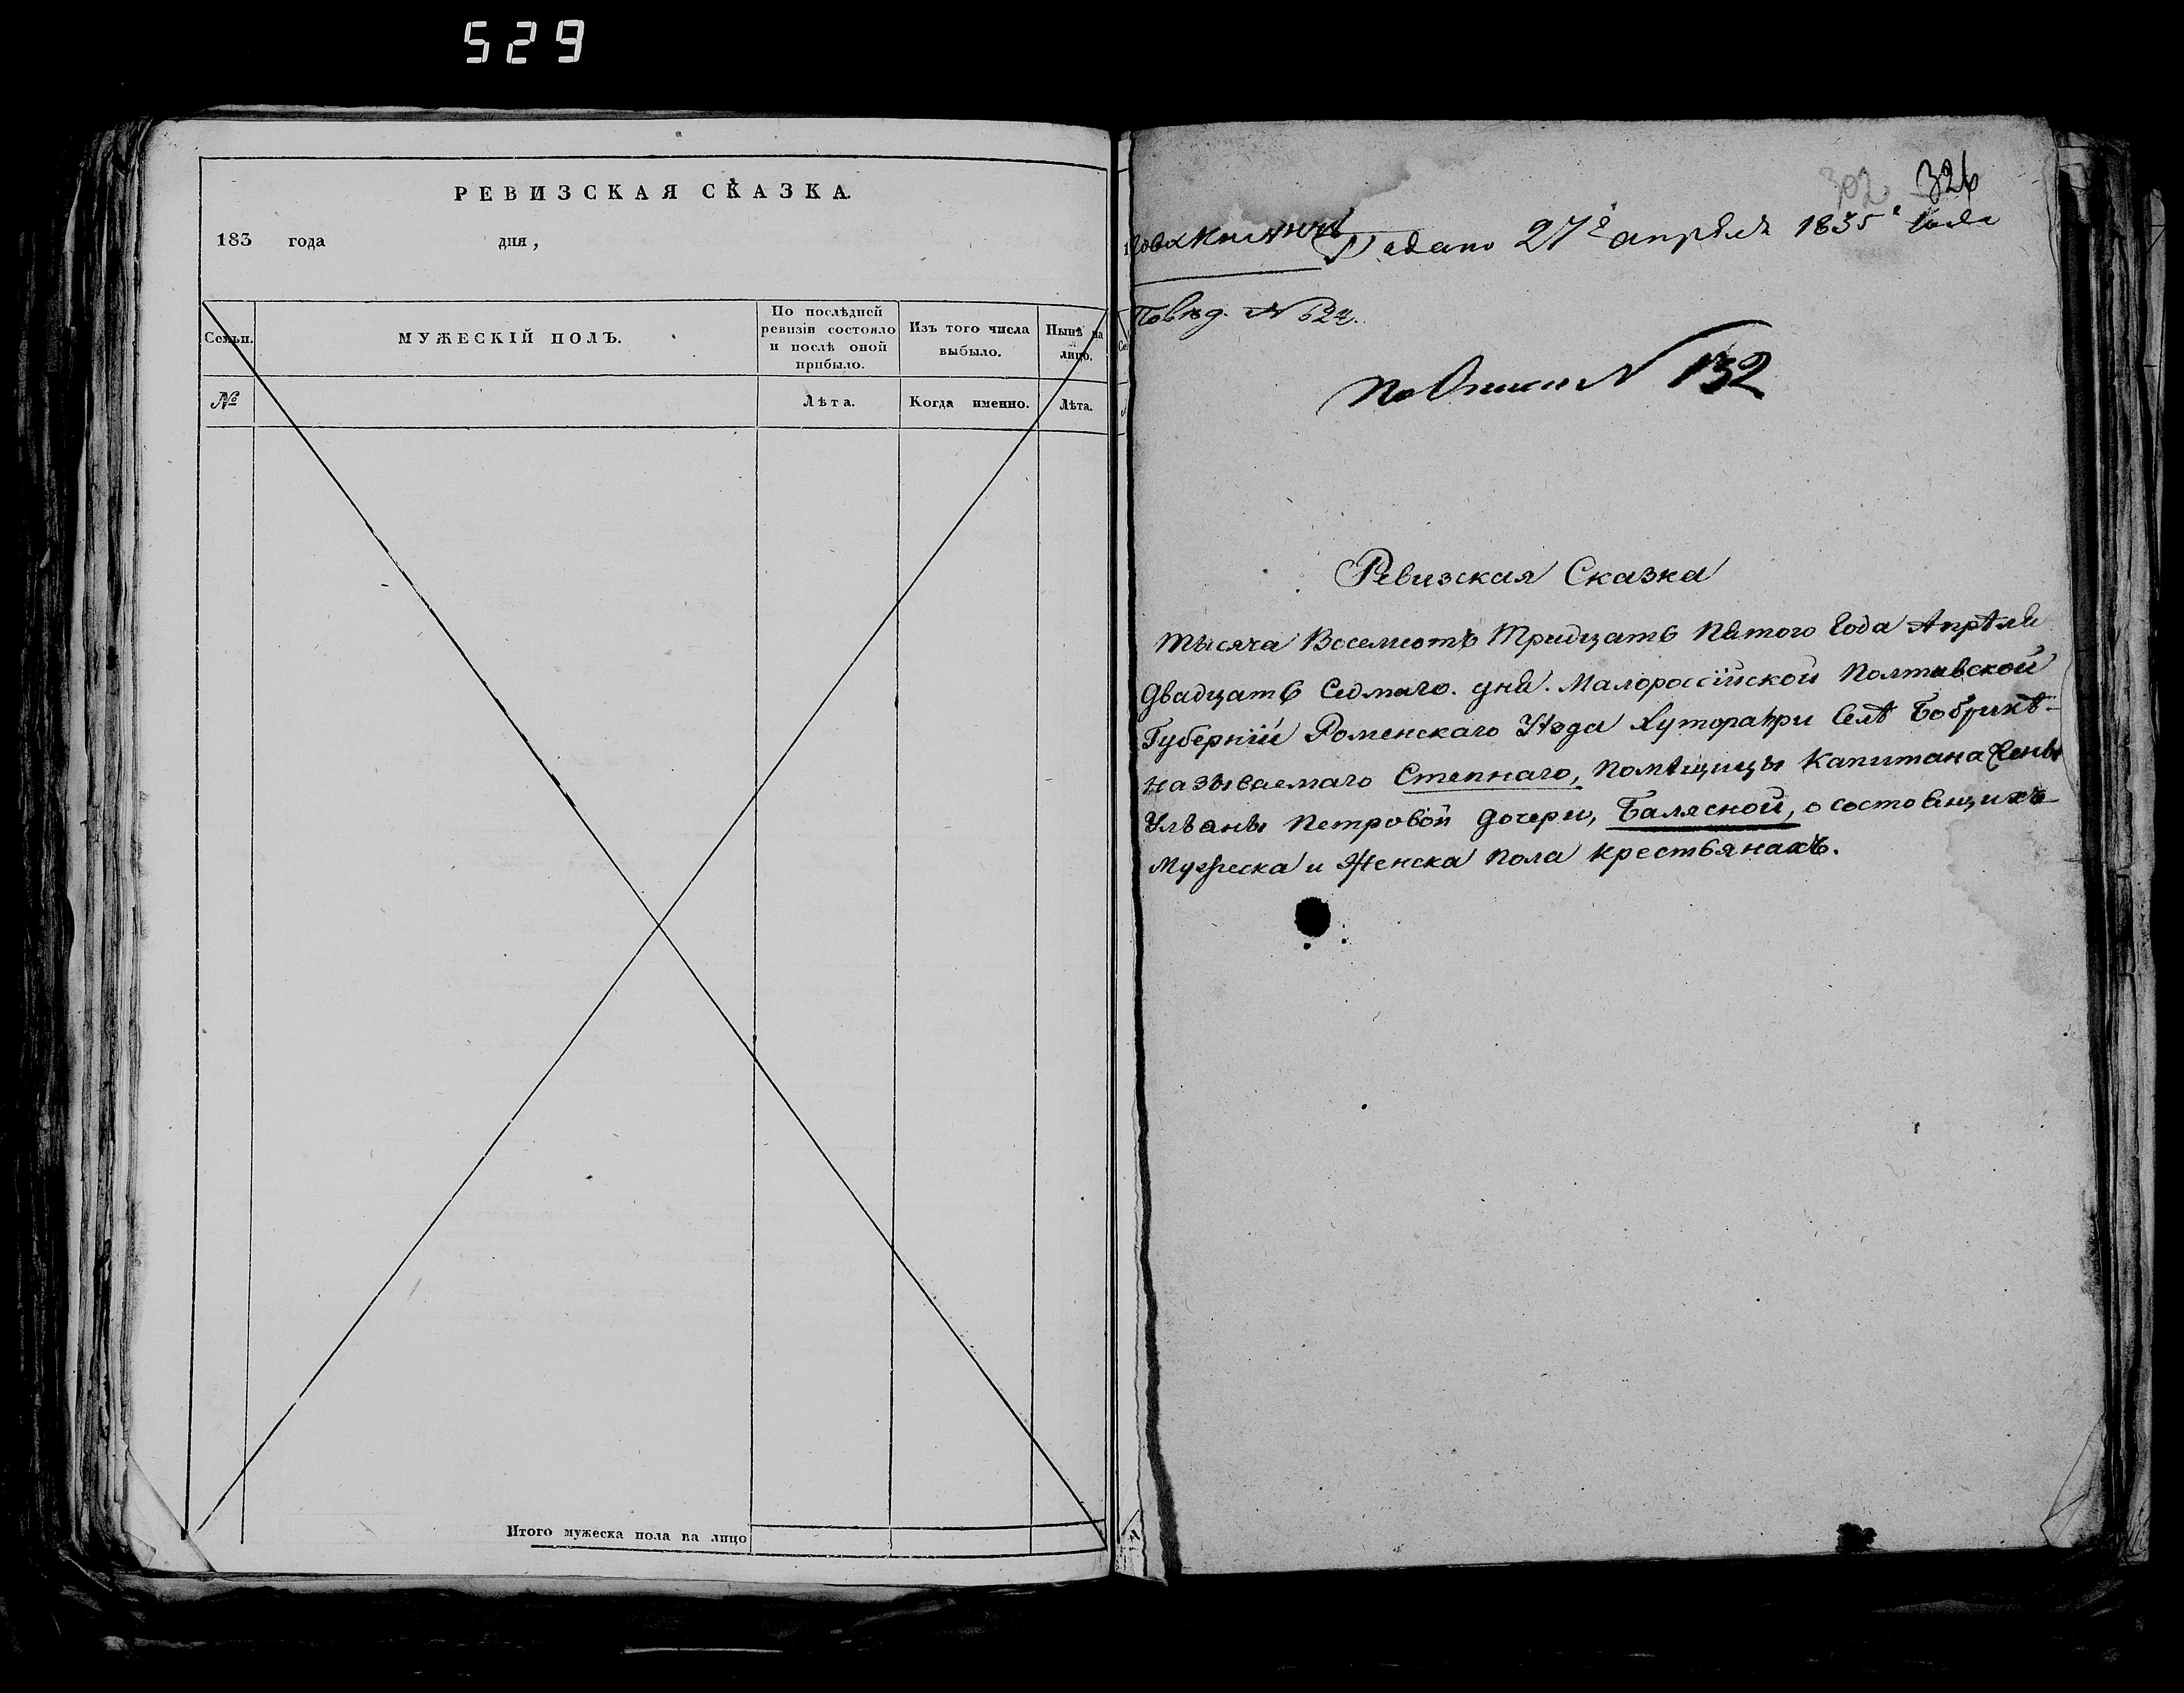 529
РЕВИЗСКАЯ СКАЗКА.
183 года дня,
Семьи.
МУЖЕСКІЙ ПОЛЪ.
По послѣдней ревизіи состояло и послѣ оной прибыло.
Изъ того числа выбыло.
Нынѣ на лицо.
№
Лѣта.
Когда именно.
Лѣта.
Итого мужеска пола на лицо
302 326
Подано 27го апрѣля 1835го года
№ 132
Ревизская Сказка
тысяча Восемьсотъ Тридцать Пятого Года Апрѣля
двадцать Седмаго. дня. Малороссійской Полтавской
Губерніи Роменскаго Уѣзда Хутора при Селѣ Бобрикѣ-
называемаго Степнаго, помѣщицы Капитана Жены
Ульяны Петровой дочери, Балясной, о состоящихъ
Мужеска и Женска пола крестьянахъ.